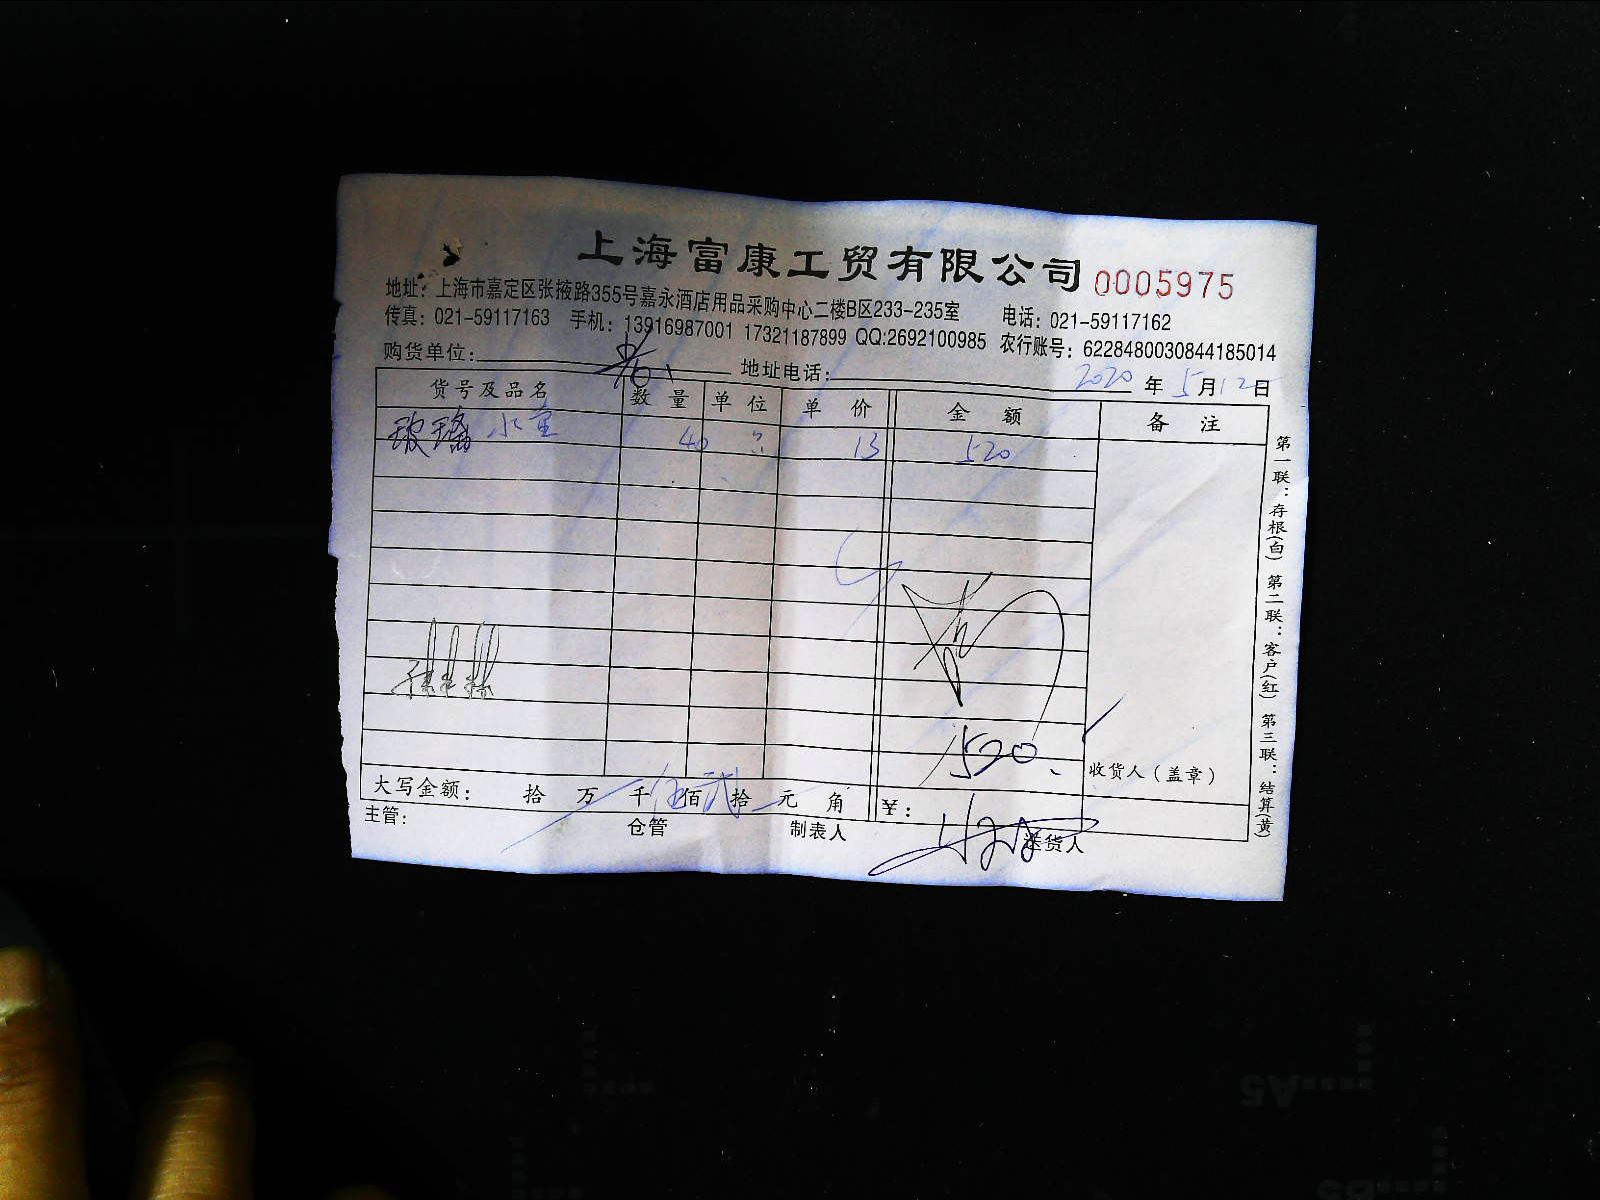 上海富康工贸有限公司 0005975
地址：上海市嘉定区张掖路355号嘉永酒店用品采购中心二楼B区233-235室 电话：021-59117162
传真：021-59117163 手机：13916987001 17321187899 QQ:2692100985 农行账号：6228480030844185014
购货单位： 地址电话： 2020年5月12日
货号及品名 数量 单位 单价 金额 备注
玻璃水壶 40 13 520
520
收货人（盖章）
大写金额： 拾 万 千 伍佰 贰拾 元 角 ￥：
主管： 仓管 制表人 送货人
第一联：存根(白) 第二联：客户(红) 第三联：结算(黄)
A5